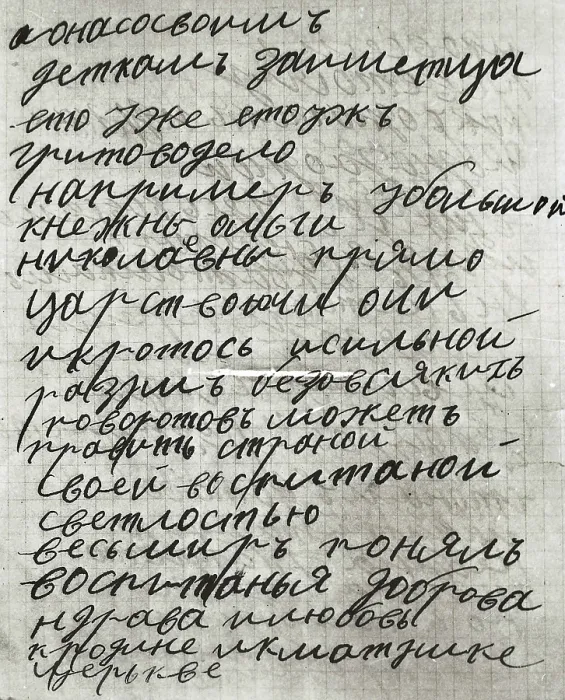 аонасосвоимъ
деткамъ заимetца
ето уже етоужъ
гритоводело
например​ъ убольшой
кнежны ольги
николавны прямо
царствоючи оии
икротось исильной
разумъ безовсякихъ
поворотовъ можетъ
править страной
своей воспитаной
светлостью
весьмиръ понялъ
воспитанья доброва
ндрава илюбовь
кродине икматушке
церькве